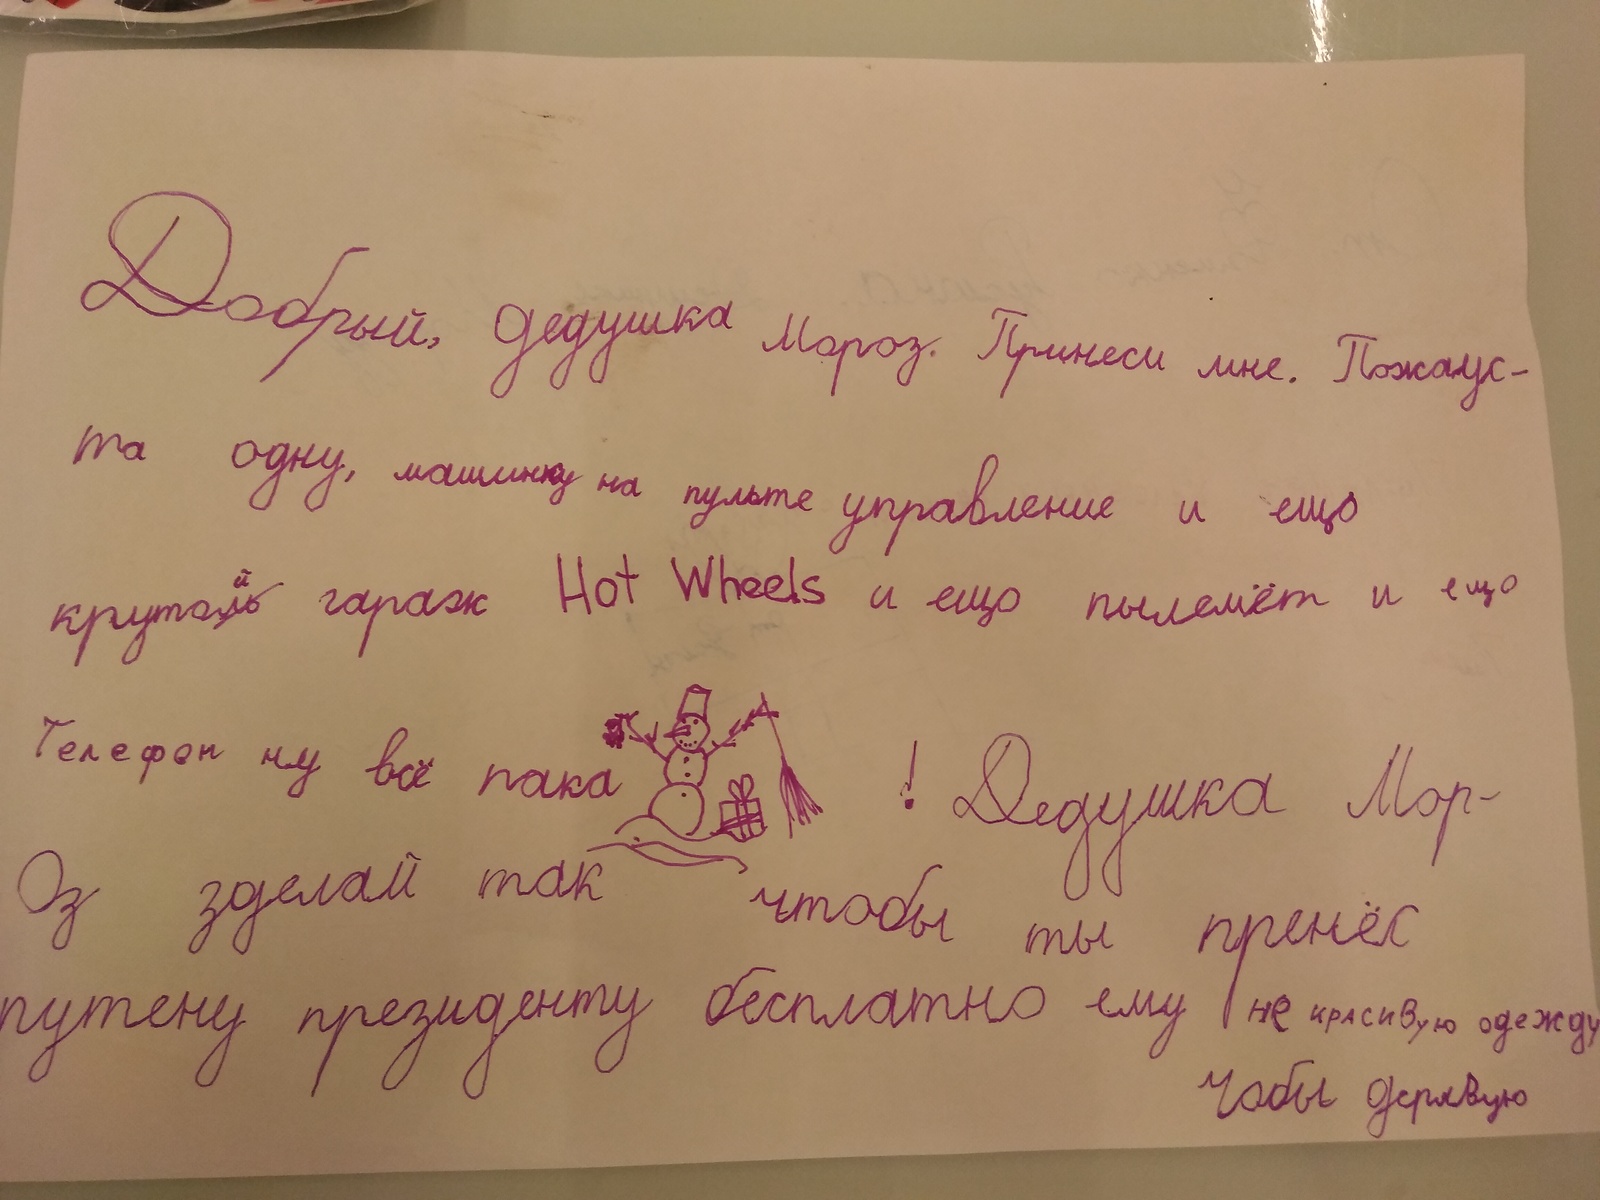 Добрый, дедушка Мороз. Принеси мне. Пожаус-
та одну, машинку на пульте управление и ещо
крутой гараж Hot Wheels и ещо пылемёт и ещо
Телефон ну всё пака ! Дедушка Мор-
Оз зделай так чтобы ты пренёс
путену президенту бесплатно ему не красивую одежду
Чобы дерявую